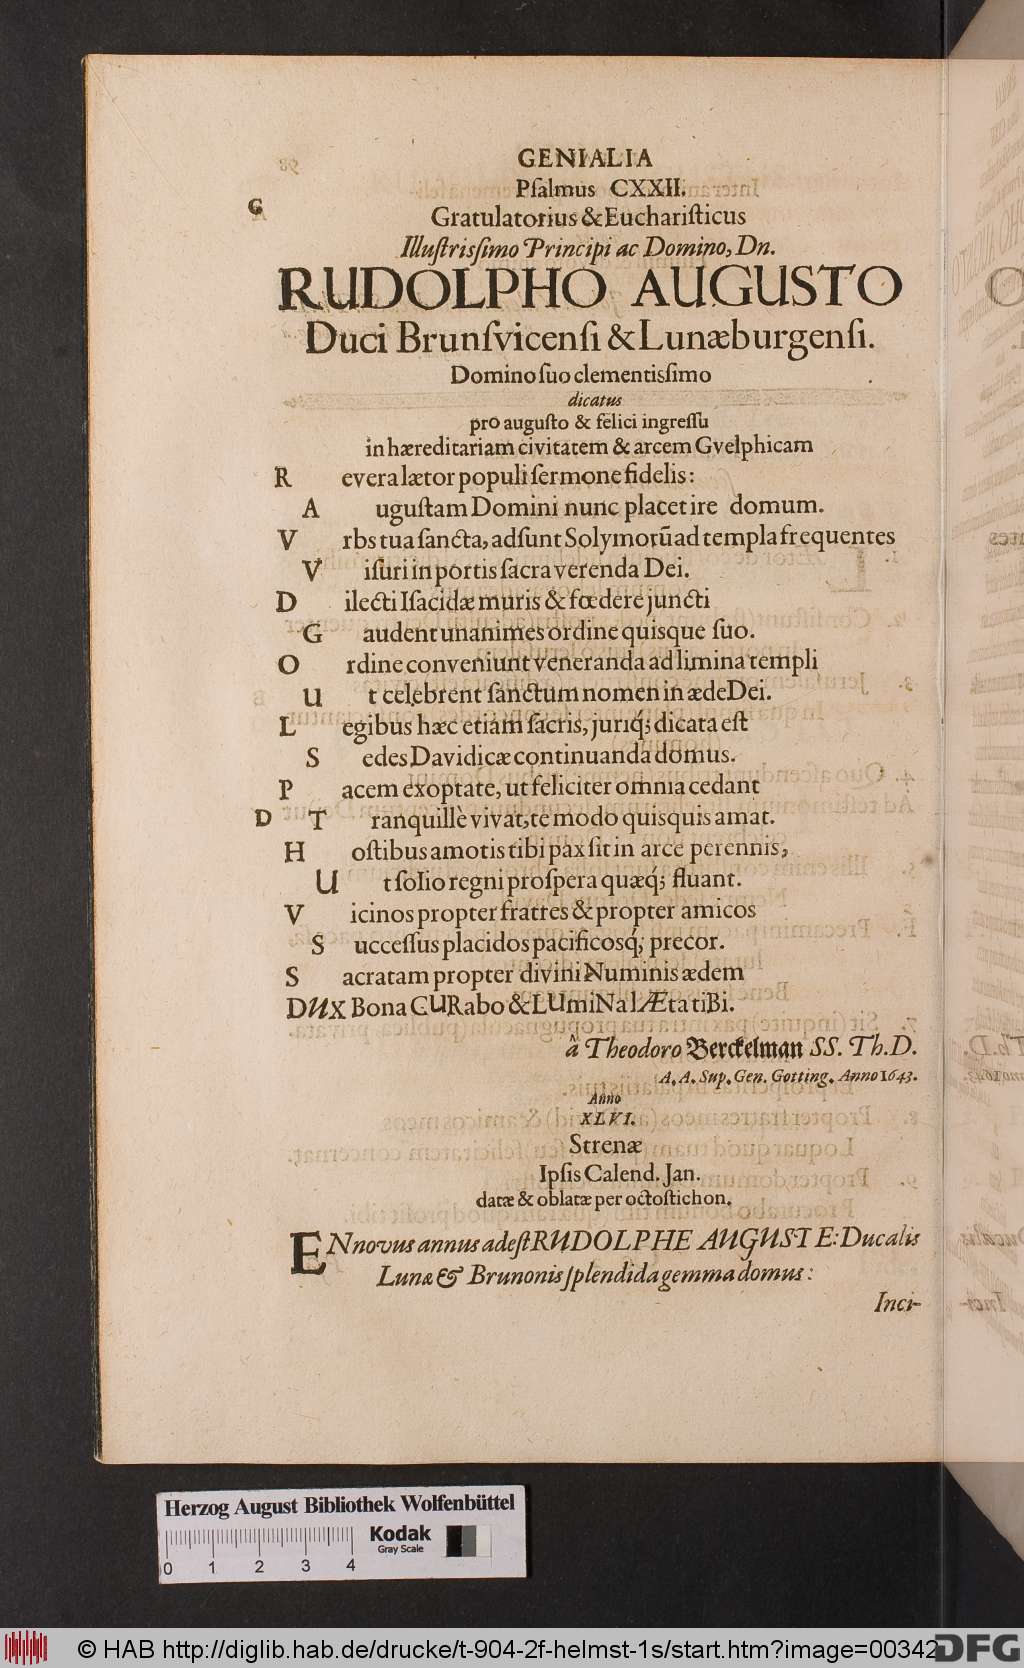 GENIALIA
Pſalmus CXXII.
G
Gratulatorius & Euchariſticus
Illuſtrisſimo Principi ac Domino, Dn.
RUDOLPHO AUGUSTO
Duci Brunſvicenſi & Lunæburgenſi.
Domino ſuo clementisſimo
dicatus
pro auguſto & felici ingreſſu
in hæreditariam civitatem & arcem Gvelphicam
R evera lætor populi ſermone fidelis:
A uguſtam Domini nunc placet ire domum.
V rbs tua ſancta, adſunt Solymorũ ad templa frequentes
V iſuri in portis ſacra verenda Dei.
D ilecti Iſacidæ muris & fœdere juncti
G audent unanimes ordine quisque ſuo.
O rdine conveniunt veneranda ad limina templi
U t celebrent ſanctum nomen in æde Dei.
L egibus hæc etiam ſacris, juriq́; dicata eſt
S edes Davidicæ continuanda domus.
P acem exoptate, ut feliciter omnia cedant
D T ranquillè vivat, te modo quisquis amat.
H oſtibus amotis tibi pax ſit in arce perennis,
U t ſolio regni proſpera quæq́; fluant.
V icinos propter fratres & propter amicos
S ucceſſus placidos pacificosq́; precor.
S acratam propter divini Numinis ædem
DUX Bona CURabo & LUmiNa lÆta tiBi.
â Theodoro Berckelman SS. Th. D.
A. A. Sup. Gen. Gotting. Anno 1643.
Anno
XLVI.
Strenæ
Ipſis Calend. Jan.
datæ & oblatæ per octoſtichon.
EN novus annus adeſt RUDOLPHE AUGUSTE: Ducalis
Lunæ & Brunonis ſplendida gemma domus:
Inci-
Herzog August Bibliothek Wolfenbüttel
Kodak
Gray Scale
0 1 2 3 4
© HAB http://diglib.hab.de/drucke/t-904-2f-helmst-1s/start.htm?image=00342
DFG